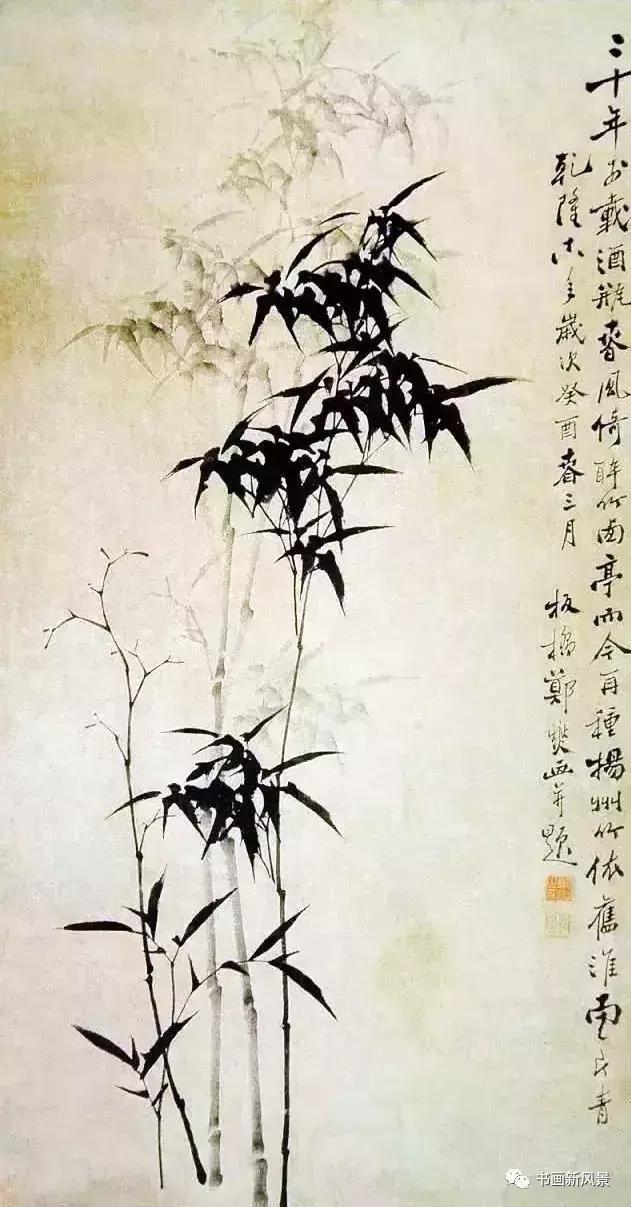 二十年前載酒瓶春風倚醉竹西亭而今再種揚州竹依舊淮南一片青
乾隆十八年歲次癸酉春三月 板橋鄭燮画并題
书画新风景